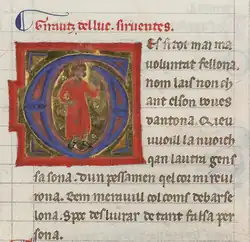 Girautz delluc. siruentes.
Es si tot mai ma
uoluntat fellona.
nom lais non ch
ant el son boues
dantona. Q ieu
uuoill la nuoich
qan lautra gens
sa sona. dun pessamen qel cor mi reui
rona. Eem merauill col coms de barse
lona. desliurar de tant falsa per
sona.